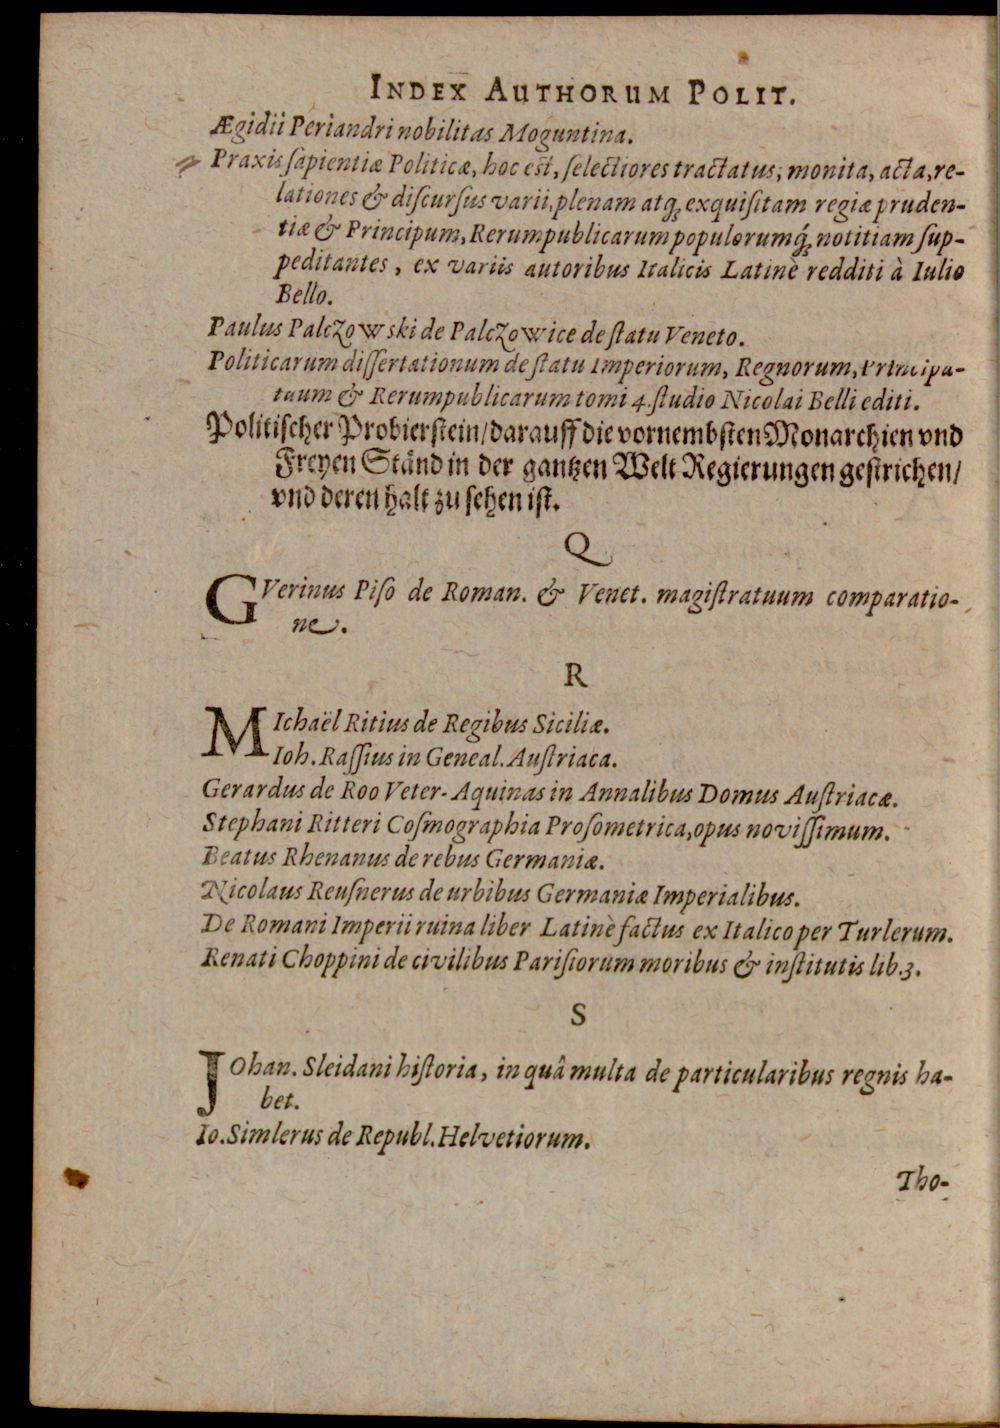 INDEX AUTHORUM POLIT.
Ægidii Periandri nobilitas Moguntina.
Praxis ſapientiæ Politicæ, hoc eſt, ſelectiores tractatus, monita, acta, re-
lationes & diſcurſus varii, plenam atq́ꝫ exquiſitam regiæ pruden-
tiæ & Principum, Rerumpublicarum populorumq́ꝫ notitiam ſup-
peditantes, ex variis autoribus Italicis Latinè redditi à Iulio
Bello.
Paulus Palczowski de Palczowice de ſtatu Veneto.
Politicarum diſſertationum de ſtatu Imperiorum, Regnorum, Principa-
tuum & Rerumpublicarum tomi 4. ſtudio Nicolai Belli editi.
Politiſcher Probierſtein/ darauff die vornembſten Monarchien vnd
Freyen Ständ in der gantzen Welt Regierungen geſtrichen/
vnd deren halt zu ſehen iſt.
Q
GVerinus Piſo de Roman. & Venet. magiſtratuum comparatio-
ne.
R
MIchaël Ritius de Regibus Siciliæ.
Ioh. Raſſius in Geneal. Auſtriaca.
Gerardus de Roo Veter-Aquinas in Annalibus Domus Auſtriacæ.
Stephani Ritteri Coſmographia Proſometrica, opus noviſſimum.
Beatus Rhenanus de rebus Germaniæ.
Nicolaus Reuſnerus de urbibus Germaniæ Imperialibus.
De Romani Imperii ruina liber Latinè factus ex Italico per Turlerum.
Renati Choppini de civilibus Pariſiorum moribus & inſtitutis lib. 3.
S
JOhan. Sleidani hiſtoria, in quâ multa de particularibus regnis ha-
bet.
Io. Simlerus de Republ. Helvetiorum.
Tho-